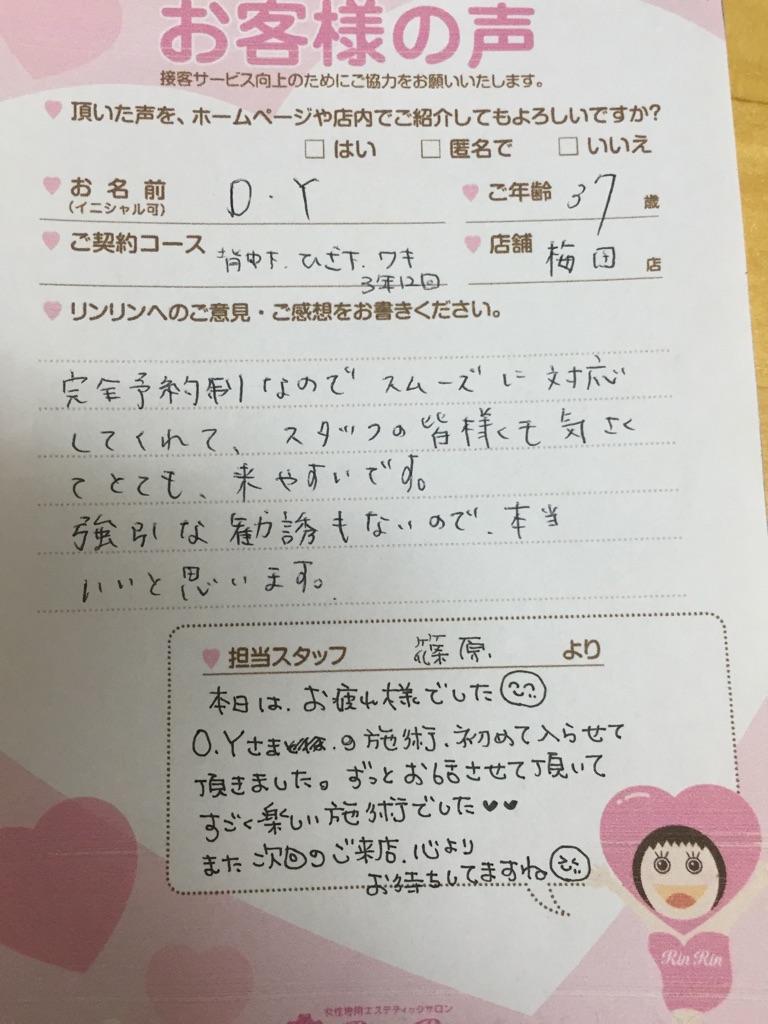 お客様の声
接客サービス向上のためにご協力をお願いいたします。
頂いた声を、ホームページや店内でご紹介してもよろしいですか?
□ はい □ 匿名で □ いいえ
お名前 O.Y ご年齢 37 歳
(イニシャル可)
ご契約コース 背中下.ひざ下.ワキ 店舗 梅田 店
3年12回
リンリンへのご意見・ご感想をお書きください。
完全予約制なのでスムーズに対応
してくれて、スタッフの皆様も気さく
てとても、来やすいです。
強引な勧誘もないので、本当
いいと思います。
担当スタッフ 篠原. より
本日は、お疲れ様でした
O.Yさまの施術、初めて入らせて
頂きました。ずっとお話させて頂いて
すごく楽しい施術でした♥♥
また次回のご来店、心より
お待ちしてますね
Rin Rin
女性専用エステティックサロン